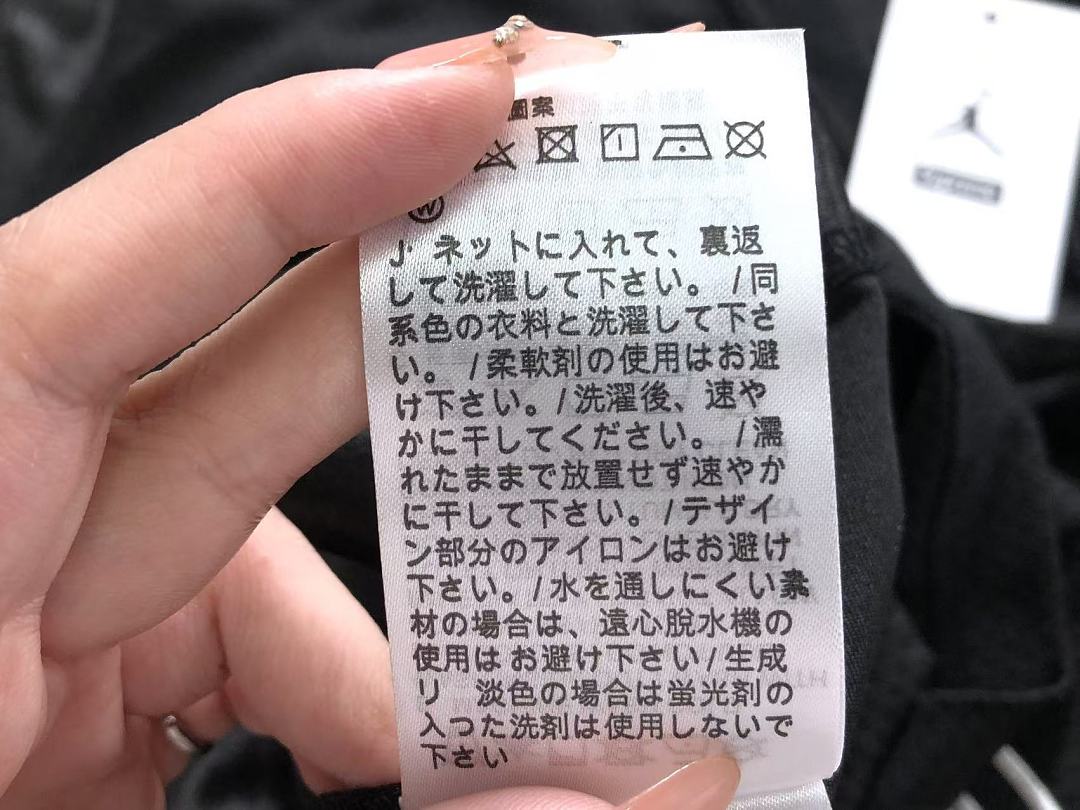 圖案
W
J' ネットに入れて、裏返
して洗濯して下さい。 /同
系色の衣料と洗濯して下さ
い。 /柔軟剤の使用はお避
け下さい。/洗濯後、速や
かに干してください。 /濡
れたままで放置せず速やか
に干して下さい。/テザイ
ン部分のアイロンはお避け
下さい。/水を通しにくい素
材の場合は、遠心脱水機の
使用はお避け下さい/生成
リ 淡色の場合は蛍光剤の
入つた洗剤は使用しないで
下さい
Supreme